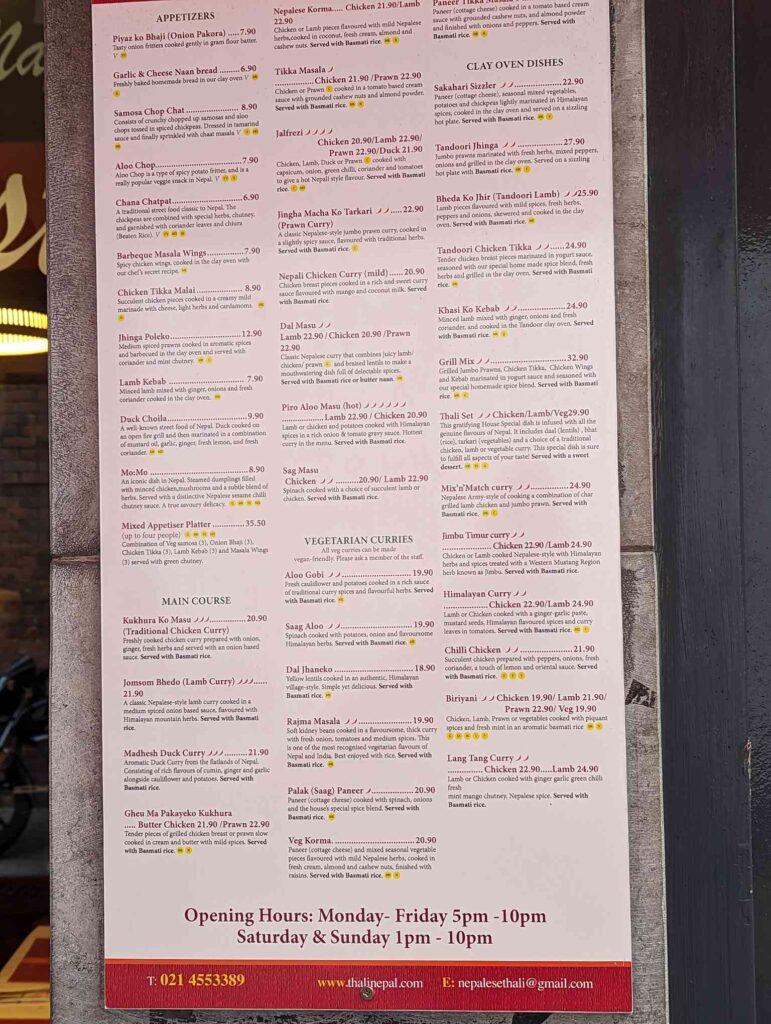 APPETIZERS
Piyaz ko Bhaji (Onion Pakora) .....7.90
Tasty onion fritters cooked gently in gram flour batter.
V
Garlic & Cheese Naan bread ........6.90
Freshly baked homemade bread in our clay oven V
Samosa Chop Chat ....................... 8.90
Consists of crunchy chopped up samosas and aloo
chops tossed in spiced chickpeas. Dressed in tamarind
sauce and finally sprinkled with chaat masala V
Aloo Chop......................................7.90
Aloo Chop is a type of spicy potato fritter, and is a
really popular veggie snack in Nepal. V
Chana Chatpat..............................6.90
A traditional street food classic to Nepal. The
chickpeas are combined with special herbs, chutney,
and garnished with coriander leaves and chiura
(Beaten Rice). V
Barbeque Masala Wings................7.90
Spicy chicken wings, cooked in the clay oven with
our chef's secret recipe.
Chicken Tikka Malai ................... 8.90
Succulent chicken pieces cooked in a creamy mild
marinade with cheese, light herbs and cardamoms.
Jhinga Poleko..............................12.90
Medium spiced prawns cooked in aromatic spices
and barbecued in the clay oven and served with
coriander and mint chutney.
Lamb Kebab ................................ 7.90
Minced lamb mixed with ginger, onions and fresh
coriander cooked in the clay oven.
Duck Choila..................................9.90
A well-known street food of Nepal. Duck cooked on
an open fire grill and then marinated in a combination
of mustard oil, garlic, ginger, fresh lemon, and fresh
coriander.
Mo:Mo .........................................8.90
An iconic dish in Nepal. Steamed dumplings filled
with minced chicken,mushrooms and a subtle blend of
herbs. Served with a distinctive Nepalese sesame chilli
chutney sauce. A true savoury delicacy.
Mixed Appetiser Platter ..............35.50
(up to four people)
Combination of Veg samosa (3), Onion Bhaji (3),
Chicken Tikka (3), Lamb Kebab (3) and Masala Wings
(3) served with green chutney.
MAIN COURSE
Kukhura Ko Masu ...........20.90
(Traditional Chicken Curry)
Freshly cooked chicken curry prepared with onion,
ginger, fresh herbs and served with an onion based
sauce. Served with Basmati rice.
Jomsom Bhedo (Lamb Curry) ......
21.90
A classic Nepalese-style lamb curry cooked in a
medium spiced onion based sauce, flavoured with
Himalayan mountain herbs. Served with Basmati
rice.
Madhesh Duck Curry ..........21.90
Aromatic Duck Curry from the flatlands of Nepal.
Consisting of rich flavours of cumin, ginger and garlic
alongside cauliflower and potatoes. Served with
Basmati rice.
Gheu Ma Pakayeko Kukhura
..... Butter Chicken 21.90 /Prawn 22.90
Tender pieces of grilled chicken breast or prawn slow
cooked in cream and butter with mild spices. Served
with Basmati rice.
Nepalese Korma..... Chicken 21.90/Lamb
22.90
Chicken or Lamb pieces flavoured with mild Nepalese
herbs,cooked in coconut, fresh cream, almond and
cashew nuts. Served with Basmati rice.
Tikka Masala
................. Chicken 21.90 /Prawn 22.90
Chicken or Prawn cooked in a tomato based cream
sauce with grounded cashew nuts and almond powder.
Served with Basmati rice.
Jalfrezi
Chicken 20.90/Lamb 22.90/
Prawn 22.90/Duck 21.90
Chicken, Lamb, Duck or Prawn cooked with
capsicum, onion, green chilli, coriander and tomatoes
to give a hot Nepali style flavour. Served with Basmati
rice.
Jingha Macha Ko Tarkari .....22.90
(Prawn Curry)
A classic Nepalese-style jumbo prawn curry, cooked in
a slightly spicy sauce, flavoured with traditional herbs.
Served with Basmati rice.
Nepali Chicken Curry (mild)......20.90
Chicken breast pieces cooked in a rich and sweet curry
sauce flavoured with mango and coconut milk. Served
with Basmati rice.
Dal Masu
Lamb 22.90 / Chicken 20.90 /Prawn
22.90
Classic Nepalese curry that combines juicy lamb/
chicken/ prawn and braised lentils to make a
mouthwatering dish full of delectable spices.
Served with Basmati rice or butter naan.
Piro Aloo Masu (hot)
................. Lamb 22.90 / Chicken 20.90
Lamb or chicken and potatoes cooked with Himalayan
spices in a rich onion & tomato gravy sauce. Hottest
curry in the menu. Served with Basmati rice.
Sag Masu
Chicken ..........20.90/ Lamb 22.90
Spinach cooked with a choice of succulent lamb or
chicken. Served with Basmati rice.
VEGETARIAN CURRIES
All veg curries can be made
vegan-friendly. Please ask a member of the staff.
Aloo Gobi .........................19.90
Fresh cauliflower and potatoes cooked in a rich sauce
of traditional curry spices and flavourful herbs. Served
with Basmati rice.
Saag Aloo ......................19.90
Spinach cooked with potatoes, onion and flavoursome
Himalayan herbs. Served with Basmati rice.
Dal Jhaneko ................................ 18.90
Yellow lentils cooked in an authentic, Himalayan
village-style. Simple yet delicious. Served with
Basmati rice.
Rajma Masala ....................19.90
Soft kidney beans cooked in a flavoursome, thick curry
with fresh onion, tomatoes and medium spices. This
is one of the most recognised vegetarian flavours of
Nepal and India. Best enjoyed with rice. Served with
Basmati rice.
Palak (Saag) Paneer .................20.90
Paneer (cottage cheese) cooked with spinach, onions
and the house's special spice blend. Served with
Basmati rice.
Veg Korma.................................20.90
Paneer (cottage cheese) and mixed seasonal vegetable
pieces flavoured with mild Nepalese herbs, cooked in
fresh cream, almond and cashew nuts, finished with
raisins. Served with Basmati rice.
Paneer Tikka Masala
Paneer (cottage cheese) cooked in a tomato based cream
sauce with grounded cashew nuts, and almond powder
and finished with onions and peppers. Served with
Basmati rice.
CLAY OVEN DISHES
Sakahari Sizzler ................22.90
Paneer (cottage cheese), seasonal mixed vegetables,
potatoes and chickpeas lightly marinated in Himalayan
spices, cooked in the clay oven and served on a sizzling
hot plate. Served with Basmati rice.
Tandoori Jhinga ................27.90
Jumbo prawns marinated with fresh herbs, mixed peppers,
onions and grilled in the clay oven. Served on a sizzling
hot plate with Basmati rice.
Bheda Ko Jhir (Tandoori Lamb) 25.90
Lamb pieces flavoured with mild spices, fresh herbs,
peppers and onions, skewered and cooked in the clay
oven. Served with Basmati rice.
Tandoori Chicken Tikka ......24.90
Tender chicken breast pieces marinated in yogurt sauce,
seasoned with our special home made spice blend, fresh
herbs and grilled in the clay oven. Served with Basmati
rice.
Khasi Ko Kebab ................24.90
Minced lamb mixed with ginger, onions and fresh
coriander, and cooked in the Tandoor clay oven. Served
with Basmati rice.
Grill Mix ..........................32.90
Grilled Jumbo Prawns, Chicken Tikka, Chicken Wings
and Kebab marinated in yogurt sauce and seasoned with
our special homemade spice blend. Served with Basmati
rice.
Thali Set Chicken/Lamb/Veg29.90
This gratifying House Special dish is infused with all the
genuine flavours of Nepal. It includes daal (lentils) , bhat
(rice), tarkari (vegetables) and a choice of a traditional
chicken, lamb or vegetable curry. This special dish is sure
to fulfill all aspects of your taste! Served with a sweet
dessert.
Mix'n'Match curry .............24.90
Nepalese Army-style of cooking a combination of char
grilled lamb chicken and jumbo prawn. Served with
Basmati rice.
Jimbu Timur curry
................. Chicken 22.90 /Lamb 24.90
Chicken or Lamb cooked Nepalese-style with Himalayan
herbs and spices treated with a Western Mustang Region
herb known as Jimbu. Served with Basmati rice.
Himalayan Curry
............... Chicken 22.90/Lamb 24.90
Lamb or Chicken cooked with a ginger-garlic paste,
mustard seeds, Himalayan flavoured spices and curry
leaves in tomatoes. Served with Basmati rice.
Chilli Chicken ..................21.90
Succulent chicken prepared with peppers, onions, fresh
coriander, a touch of lemon and oriental sauce. Served
with Basmati rice.
Biriyani Chicken 19.90/ Lamb 21.90/
Prawn 22.90/ Veg 19.90
Chicken, Lamb, Prawn or vegetables cooked with piquant
spices and fresh mint in an aromatic basmati rice
Lang Tang Curry
.............. Chicken 22.90.....Lamb 24.90
Lamb or Chicken cooked with ginger garlic green chilli
fresh
mint mango chutney, Nepalese spice. Served with
Basmati rice.
Opening Hours: Monday- Friday 5pm -10pm
Saturday & Sunday 1pm - 10pm
T: 021 4553389
www.thalinepal.com
E: nepalesethali@gmail.com